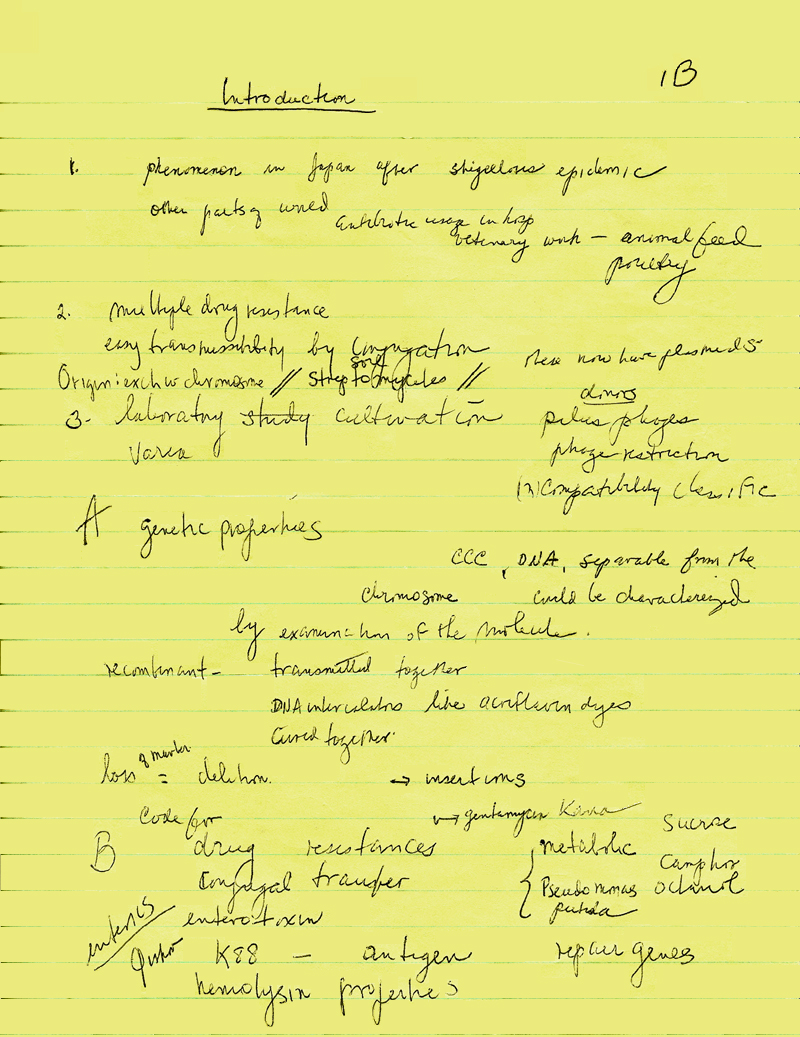 1B
Introduction
1. phenomenon in Japan after shigellosis epidemic
other parts of world
antibiotic usage in hosp
vetenary work — animal feed
poultry
2. multiple drug resistance
easy transmissibility by conjugation
these now have plasmids
soil
Origin: exch w chromosome // Streptomyceles //
donors
3- laboratory study cultivation
pilus phages
phage restriction
(In)Compatibility Classific
A genetic properties
CCC, DNA, separable from the
chromosome could be characterized
by examination of the molecule.
recombinant - transmitted together
DNA intercalators like acriflavin dyes
Cured together.
of marker
loss = deletion. → insertions
Code for → gentamycin Kana
Sucrose
B drug resistances metabolic
Camphor
Conjugal transfer Pseudomonas octanol
putida
enterics
enterotoxin
K88 — antigen repair genes
hemolysin properties